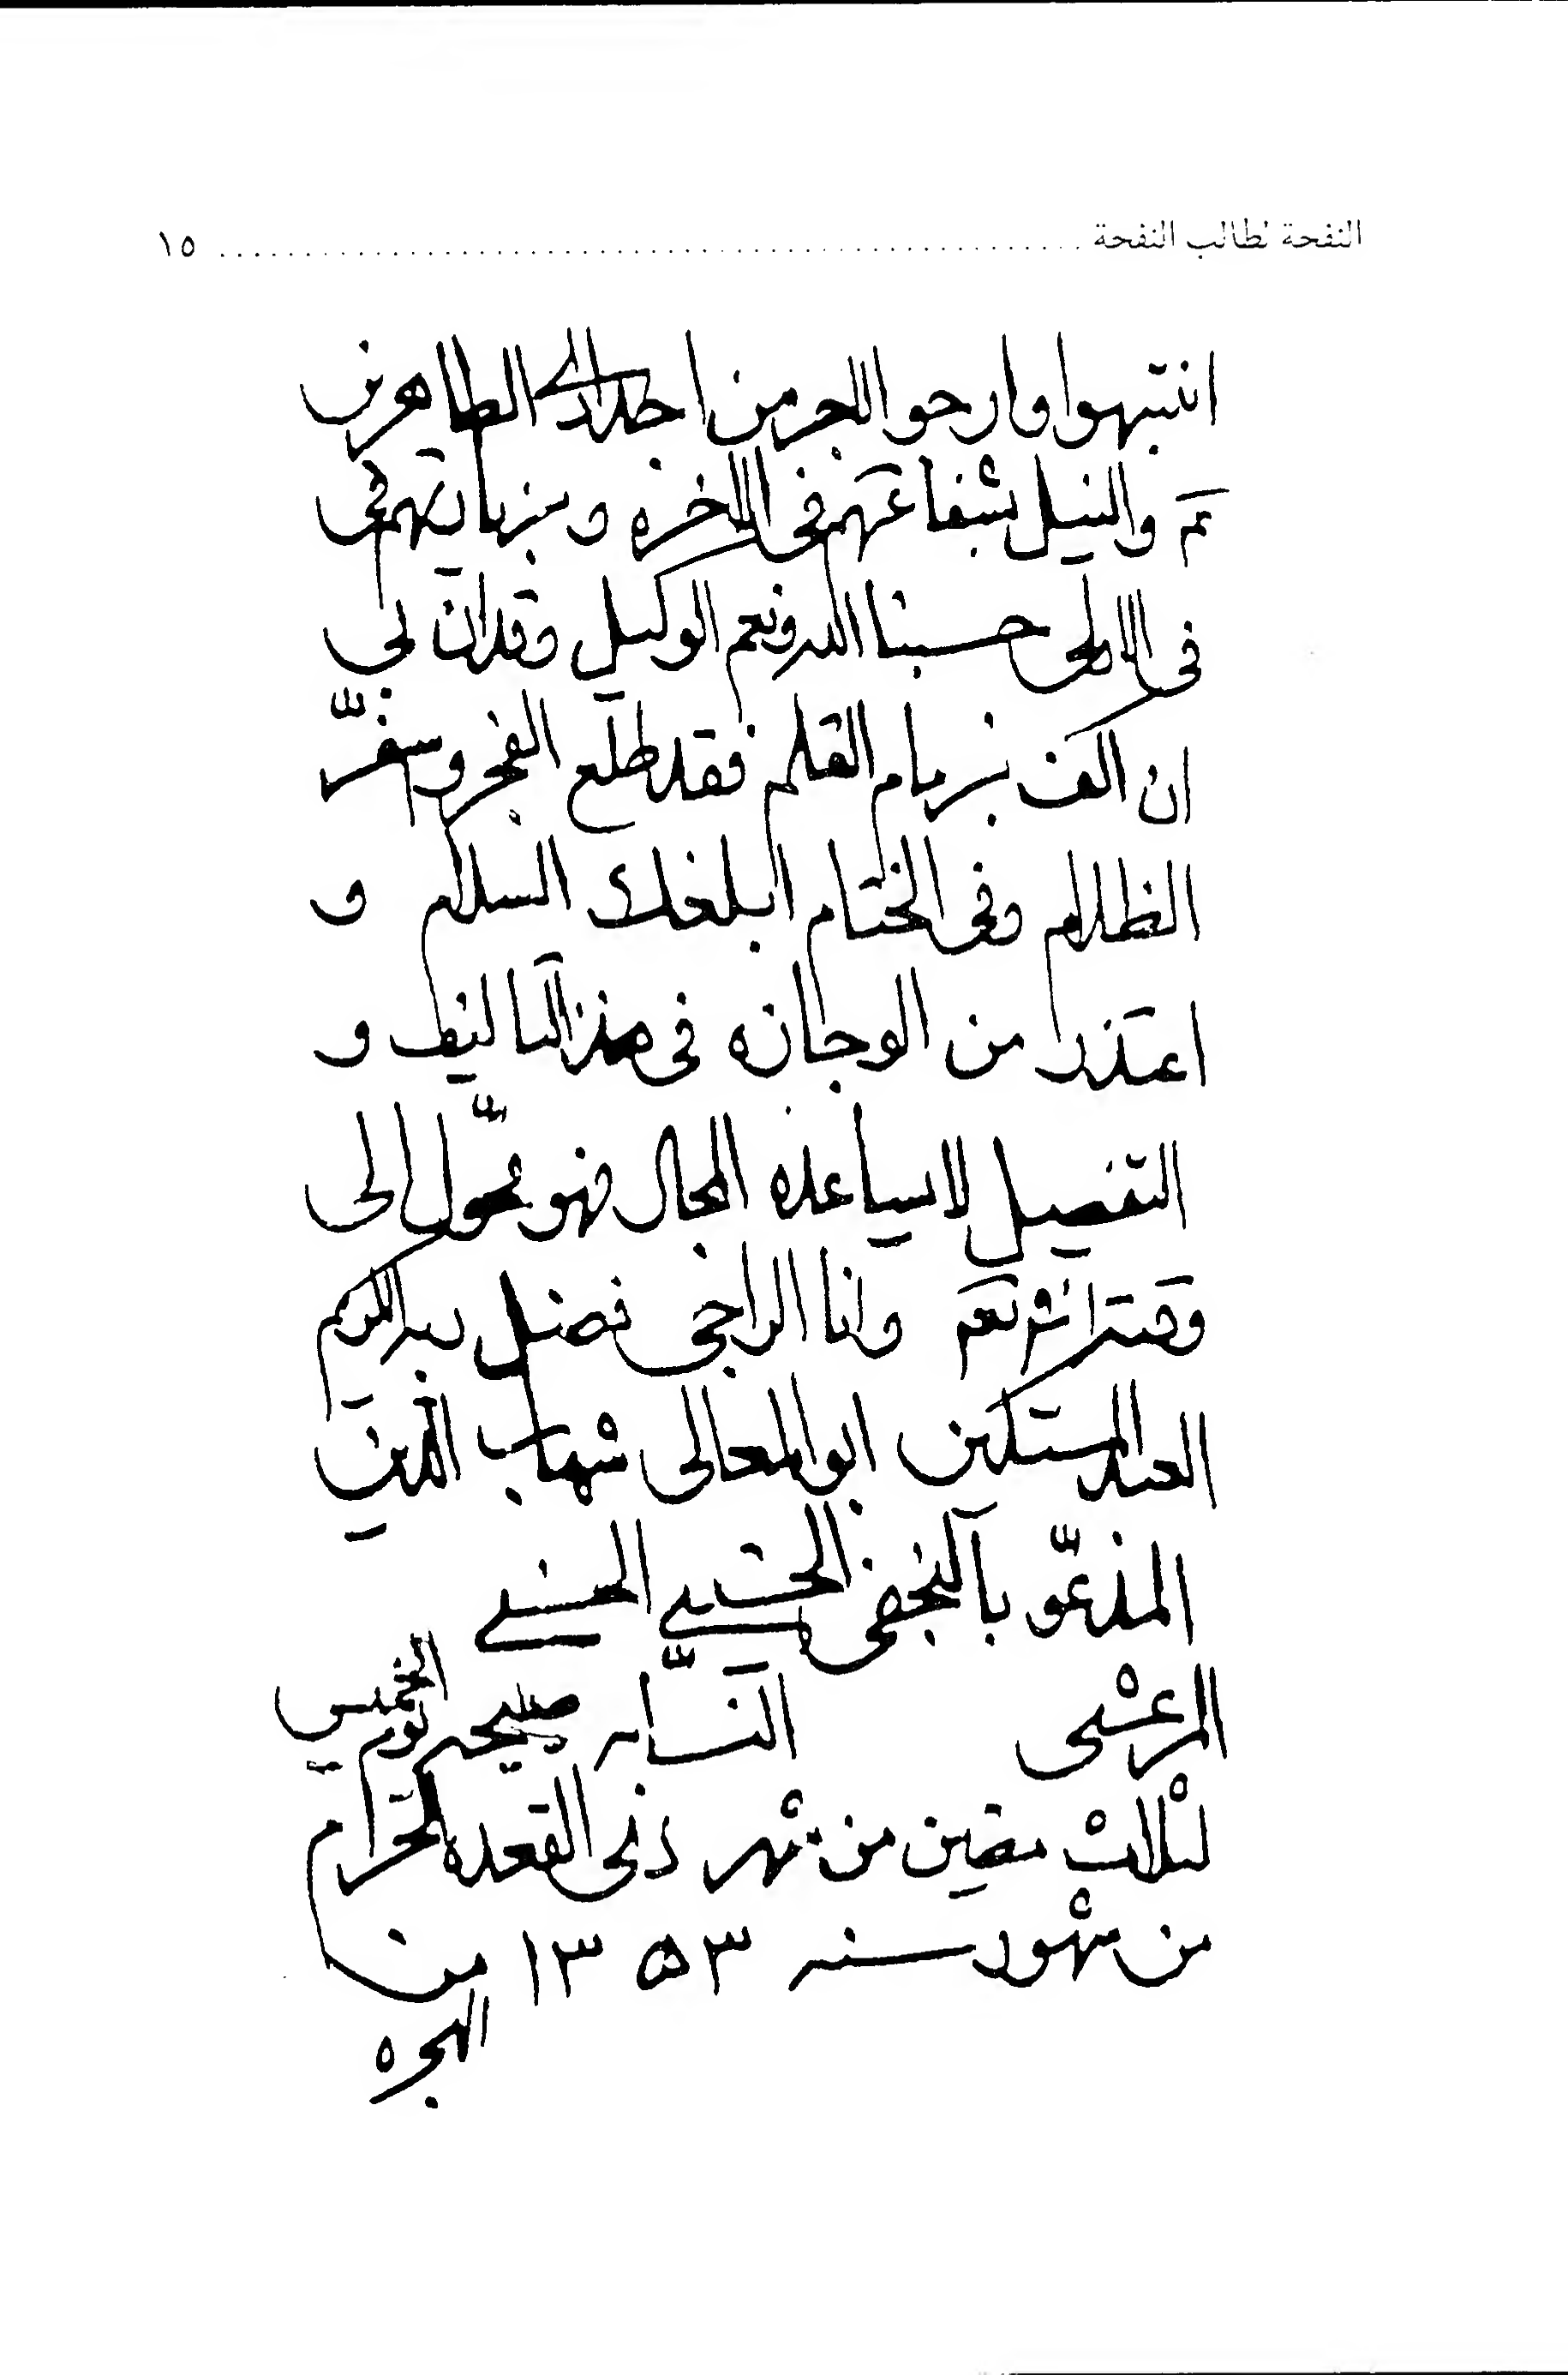 النفحة لطالب النفحة ........ ١٥
انتبهوا وارجوا الاجر من اجدادي الطاهرين
ثم والنيل بشفاعتهم فى الاخره و بزيارتهم
فى الاولى حسبنا الله ونعم الوكيل وقد ان لى
ان اكف زمام القلم فقد طلع الفجر و سفر
الظلام وفى الختام ابلغك السلام و
اعتذر من الوجازه فى هذا التاليف و
التفصيل لا يساعده المجال فهو محول الى
وقت اخر نعم وانا الراجى فضل ربه الكريم
العبد المستكين ابو المعالى شهاب الدين
المدعو بالنجفى الحسينى الحسنى
المرعشى النسابه صبيحه يوم الخميس
لثلاث مضين من شهر ذى القعده الحرام
من شهور سنه ١٣٥٣ من
الهجره